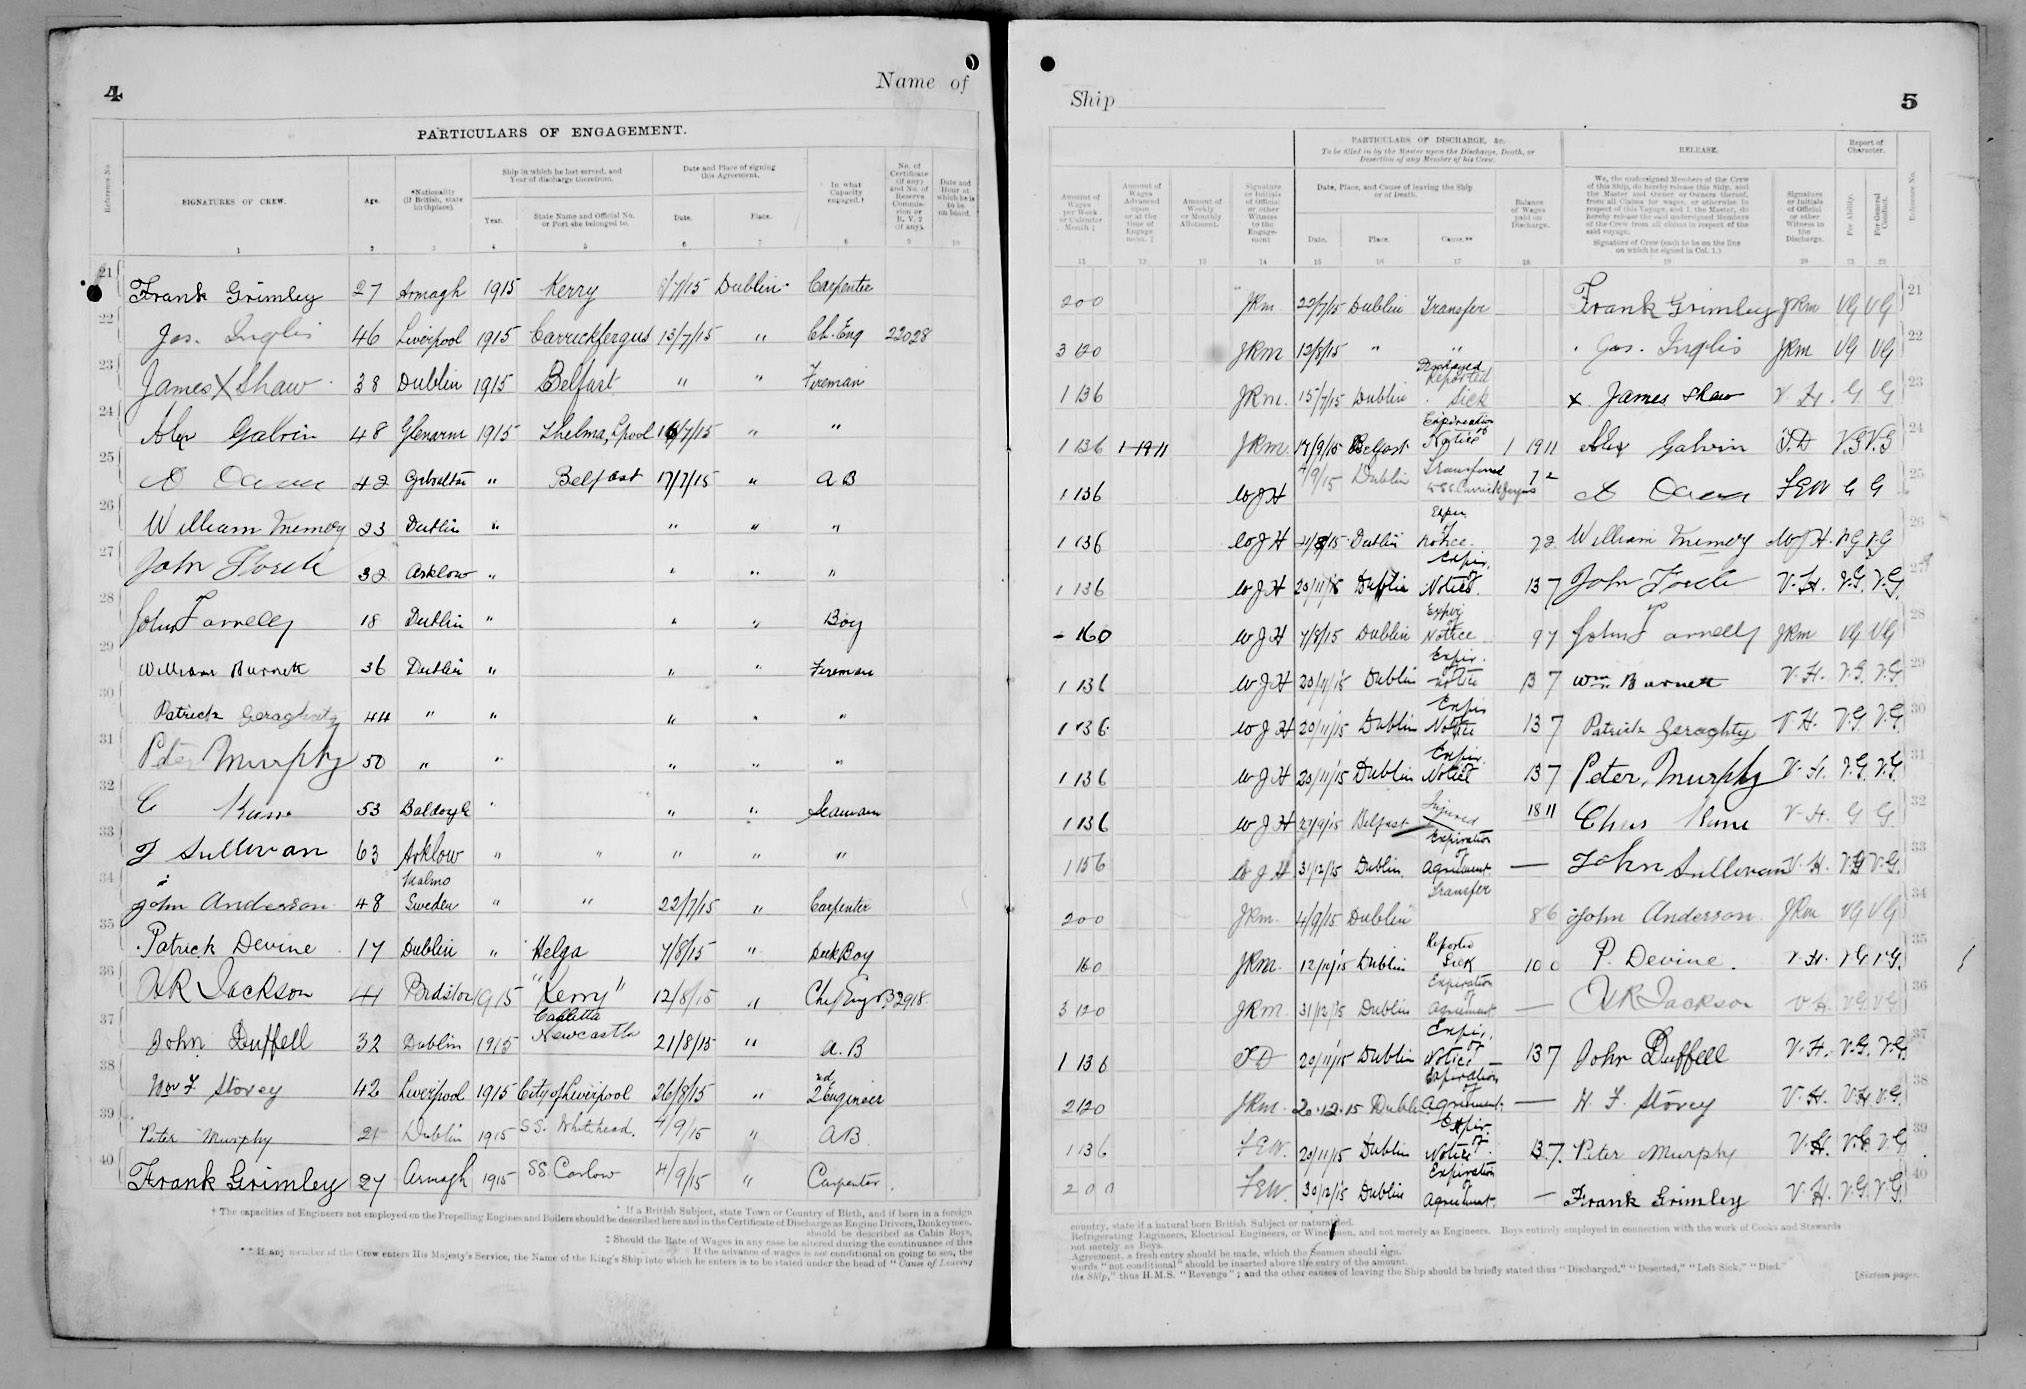 4
Name of
PARTICULARS OF ENGAGEMENT.
Reference No. SIGNATURES OF CREW. Age. *Nationality (If British, state birthplace). Ship in which he last served, and Year of discharge therefrom. Year. State Name and Official No. or Port she belonged to. Date and Place of signing this Agreement. Date. Place. In what Capacity engaged.† No. of Certificate (if any) and No. of Reserve Commission or R. V. 2 (if any). Date and Hour at which he is to be on board.
1 2 3 4 5 6 7 8 9 10
21 Frank Grimley 27 Armagh 1915 Kerry /7/15 Dublin Carpenter
22 Jas. Inglis 46 Liverpool 1915 Carrickfergus 13/7/15 " Ch. Eng 22028
23 James X Shaw 38 Dublin 1915 Belfast " " Fireman
24 Alex Galvin 48 Glenarm 1915 Thelma, Lpool 16/7/15 " "
25 42 Gibraltar " Belfast 17/7/15 " A B
26 William 23 Dublin " " " "
27 John 32 Arklow " " " "
28 John Farrelly 18 Dublin " " " Boy
29 William Burnett 36 Dublin " " " Fireman
30 Patrick Geraghty 44 " " " " "
31 Peter Murphy 50 " " " " "
32 C 53 Baldoyle " " " Seaman
33 J Sullivan 63 Arklow " " " " "
34 John Anderson 48 Malmo Sweden " " 22/7/15 " Carpenter
35 Patrick Devine 17 Dublin " Helga 7/8/15 " Deck Boy
36 Jackson 41 1915 "Kerry" 12/8/15 " Chef Eng 32918
37 John Duffell 32 Dublin 1915 Newcastle 21/8/15 " A. B
38 Wm F. Storey 42 Liverpool 1915 City of Liverpool 26/8/15 " 2nd Engineer
39 Peter Murphy 21 Dublin 1915 S.S. Whitehead. 4/9/15 " A B
40 Frank Grimley 27 Armagh 1915 SS Carlow 4/9/15 " Carpenter.
* If a British Subject, state Town or Country of Birth, and if born in a foreign
† The capacities of Engineers not employed on the Propelling Engines and Boilers should be described here and in the Certificate of Discharge as Engine Drivers, Donkeymen,
should be described as Cabin Boys,
‡ Should the Rate of Wages in any case be altered during the continuance of this
If the advance of wages is not conditional on going to sea, the
** If any member of the Crew enters His Majesty's Service, the Name of the King's Ship into which he enters is to be stated under the head of "Cause of Leaving
Ship
5
PARTICULARS OF DISCHARGE, &c.
To be filled in by the Master upon the Discharge, Death, or Desertion of any Member of his Crew.
RELEASE.
Report of Character.
Amount of Wages per Week or Calendar Month ‡ Amount of Wages Advanced upon or at the time of Engagement. ‡ Amount of Weekly or Monthly Allotment. Signature or Initials of Official or other Witness to the Engagement Date, Place, and Cause of leaving the Ship or of Death. Date. Place. Cause.** Balance of Wages paid on Discharge.
We, the undersigned Members of the Crew of this Ship, do hereby release this Ship, and the Master and Owner or Owners thereof, from all Claims for wages, or otherwise in respect of this Voyage, and I, the Master, do hereby release the said undersigned Members of the Crew from all claims in respect of the said voyage.
Signature of Crew (each to be on the line on which he signed in Col. 1.)
Signature or Initials of Official or other Witness to the Discharge. For Ability. For General Conduct. Reference No.
11 12 13 14 15 16 17 18 19 20 21 22
200 JRM 22/7/15 Dublin Transfer Frank Grimley JRM VG VG 21
3 12 0 JRM 12/8/15 " " Jas. Inglis JRM VG VG 22
1 13 6 JRM 15/7/15 Dublin Discharged Reported Sick X James Shaw V. H. G. G 23
1 13 6 1-19 11 JRM 17/9/15 Belfast Expiration of Notice 1 19 11 Alex Galvin T.D V.G V.G 24
1 13 6 W J H 4/9/15 Dublin Transferred to SS Carrickfergus 7 2 F E W G G 25
1 13 6 W J H 4/8/15 Dublin Expir of Notice. 7 2 William W J H. V.G V.G 26
1 13 6 W J H 20/11/15 Dublin Expir. of Notice. 13 7 John V. H. V.G. V.G. 27
- 16 0 W J H 7/8/15 Dublin Expir of Notice 9 7 John Farrelly JRM VG VG 28
1 13 6 W J H 20/11/15 Dublin Expir. of Notice 13 7 Wm. Burnett V. H. V.G. V.G. 29
1 13 6 W J H 20/11/15 Dublin Expir of Notice 13 7 Patrick Geraghty V H. V.G. V.G. 30
1 13 6 W J H 20/11/15 Dublin Expir. of Notice 13 7 Peter Murphy V. H. V.G. V.G. 31
1 13 6 W J H 27/9/15 Belfast Injured 18 11 Chas V. H. G G 32
1 15 6 W J H 31/12/15 Dublin. Expiration of Agreement — John Sullivan V. H. V.G V.G. 33
200 JRM. 4/9/15 Dublin Transfer 8 6 John Anderson. JRM VG VG 34
16 0 JRM. 12/10/15 Dublin Reported Sick 10 0 P. Devine. V. H. V G V G. 35
3 12 0 JRM. 31/12/15 Dublin Expiration of Agreement — Jackson V H. V G V G 36
1 13 6 T D 20/11/15 Dublin Expir. of Notice 13 7 John Duffell V. H. V.G. V.G. 37
2 12 0 JRM. 20.12.15 Dublin Expiration of Agreement. — F. Storey V. H. V.G. 38
1 13 6 F.E.W. 20/11/15 Dublin Expir. of Notice 13. 7. Peter Murphy V. H. V.G. V G. 39
200 F.E.W. 30/12/15 Dublin Expiration of Agreement. — Frank Grimley V. H. V.G. V.G. 40
country, state if a natural born British Subject or naturalized.
Refrigerating Engineers, Electrical Engineers, or Winchmen, and not merely as Engineers. Boys entirely employed in connection with the work of Cooks and Stewards
not merely as Boys.
Agreement, a fresh entry should be made, which the Seamen should sign.
words "not conditional" should be inserted above the entry of the amount.
the Ship," thus H.M.S. "Revenge"; and the other causes of leaving the Ship should be briefly stated thus "Discharged," "Deserted," "Left Sick," "Died."
[Sixteen pages.